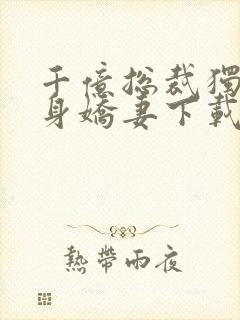 千億総裁獨
身嬌妻下載
熱帶雨夜